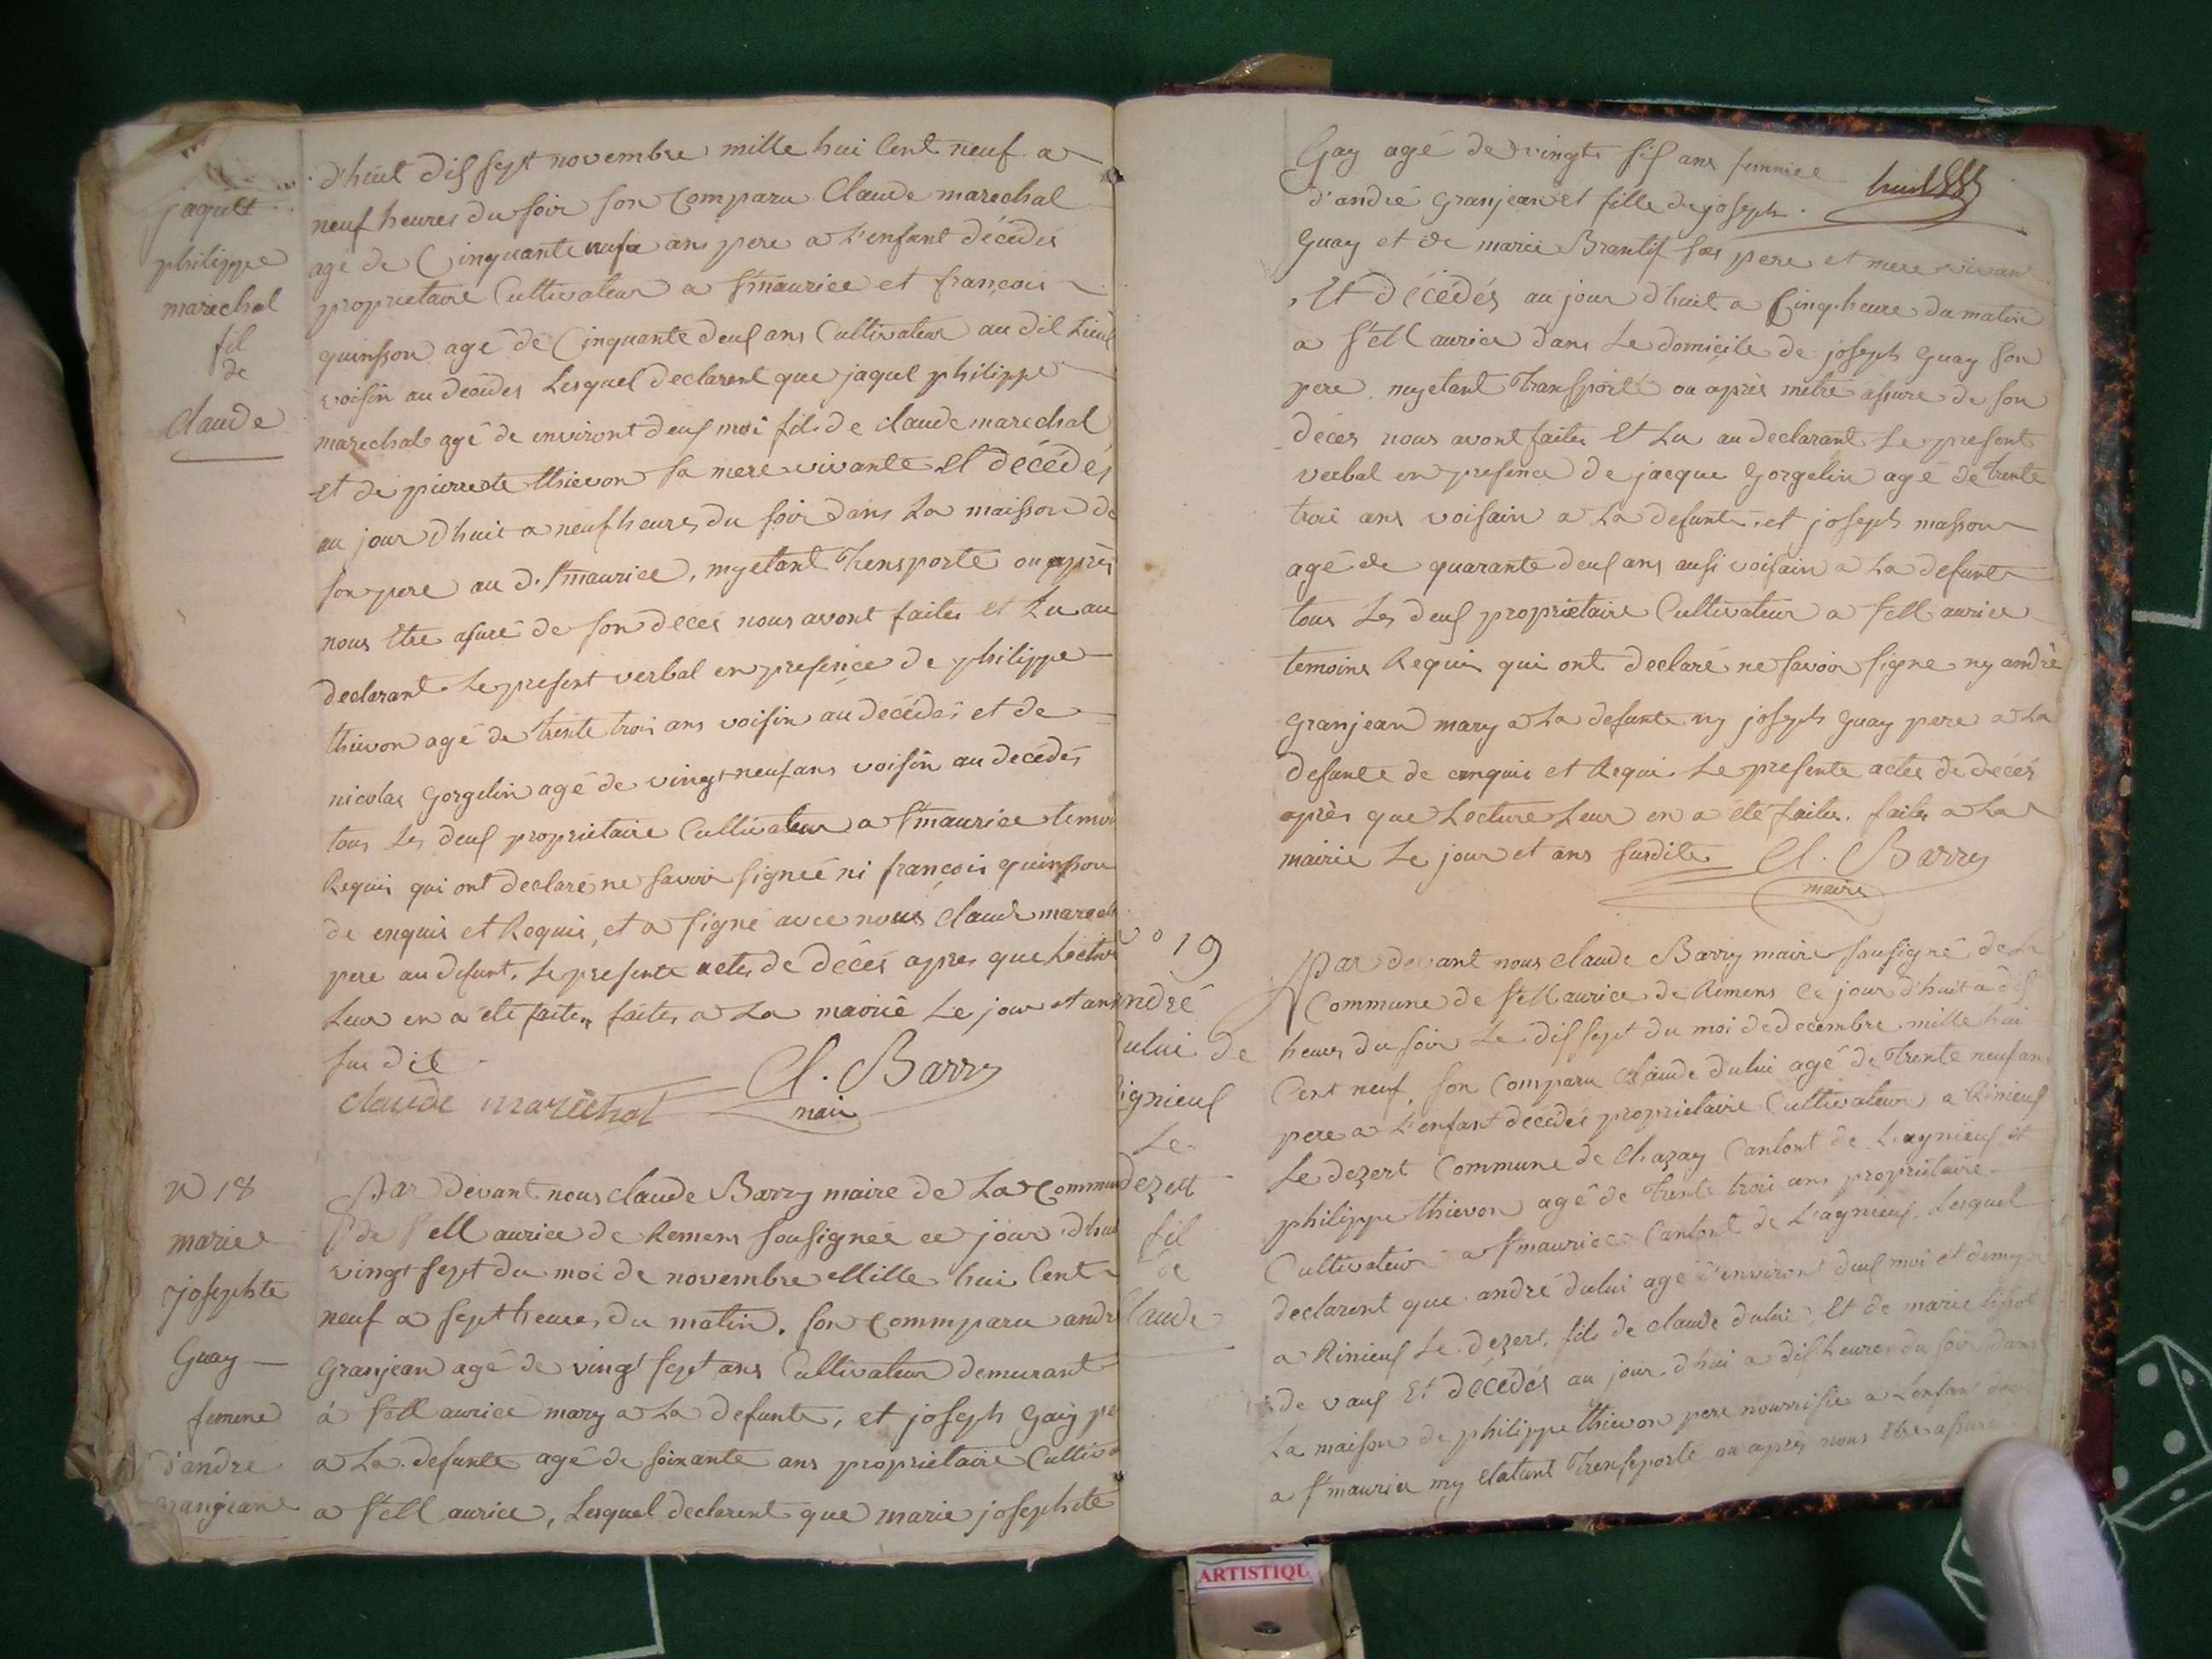 jaquet
philippe
marechal
fil
de
Claude
d'huit dis sept novembre mille hui Cent neuf a
neuf heures du soir son Comparu Claude marechal
agé de Cinquante ans pere a L'enfant décédés
proprietaire Cultivateur a st maurice et françois
quinsson agé de Cinquante deus ans Cultivateur au dit Lieus
voisin au décédés Lesquel declarent que jaquet philippe
marechal agé de environt deus moi fils de claude marechal
et de pierrette thievon sa mere vivante Et décédés
au jour d'huit a neuf heures du soir dans La maisson de
son pere au d. st maurice, my etant Trensporte ou après
nous Etre asuré de son décés nous avont faites et Lu au
declarant Le present verbal en presence de philippe
thievon agé de trente trois ans voisin au décédés et de
nicolas Gorgelin agé de vingt neuf ans voisin au decédés
tous Les deus proprietaire Cultivateur a st maurice temoi
Requis qui ont declaré ne savoir signeé ni françois quinsson
de enquis et Requis, et a signé avec nous Claude marech
pere au defunt, Le presente actes de décés apres que Lectur
Leur en a été faites, faites a La mairie Le jour et ans
sus dit
claude marechal Cl. Barry
mair
N 18
marie
josephte
Guay
femme
d'andré
granjean
Par devant nous claude Barry maire de La Commun
de st Maurice de Remens sousignée ce jour d'hui
vingt sept du moi de novembre Mille hui Cent
neuf a sept heures du matin, son Commparu andré
granjean agé de vingt sept ans Cultivateur demurant
á st Maurice mary a La defunte, et joseph Gay pe
a La defunte agé de soixante ans proprietaire Cultiva
a st Maurice, Lesquel declarent que marie josephte
Gay agé de vingt sis ans femmee
d'andré granjean et fille de joseph
Guay et de marie ses pere et mere vivan
Et décédés au jour d'huit a Cinq heure du matin
a st Maurice dans Le domicile de joseph Guay son
pere, my etant Transporté ou après metre assure de son
décés nous avont faites Et Lu au declarant Le present
verbal en presence de jacque Gorgelin agé de trente
trois ans voisain a La defunte, et joseph masson
agé de quarante deus ans ausi voisain a La defunte
tous Les deus proprietaire Cultivateur a st Maurice
temoins Requis qui ont declaré ne savoir signe ny andré
granjean mary a La defunte ny joseph Guay pere a La
defunte de enquis et Requis Le presente actes de décés
après que Lecture Leur en a été faites. faites a La
mairie Le jour et ans susdite Cl. Barry
maire
N° 19
andré
dului de
Rignieus
Le
dezert
fil
de
Claude
Par devant nous claude Barry maire sousigné de La
Commune de st Maurice de Rémens ce jour d'huit a dis
heures du soir Le dis sept du moi de decembre mille hui
Cent neuf, son Comparu Claude dului agé de Trente neuf ans
pere a L'enfant décédés proprietaire Cultivateur a Rinieus
Le dezert Commune de Chazay Cantont de Lagnieus et
philippe thievon agé de Trente trois ans proprietaire
Cultivateur a st maurice Cantont de Lagnieus, Lesquel
declarent que andré dului agé d'environt deus moi et demy
a Rinieus Le dezert, fils de claude dului, Et de marie
de vaus Et décédés au jour d'hui a dis heures du soir dans
La maison de philippe thievon pere nourrisié a Lenfant
a st maurice my etatant Trensporte ou après nous Etre assuré
ARTISTIQU